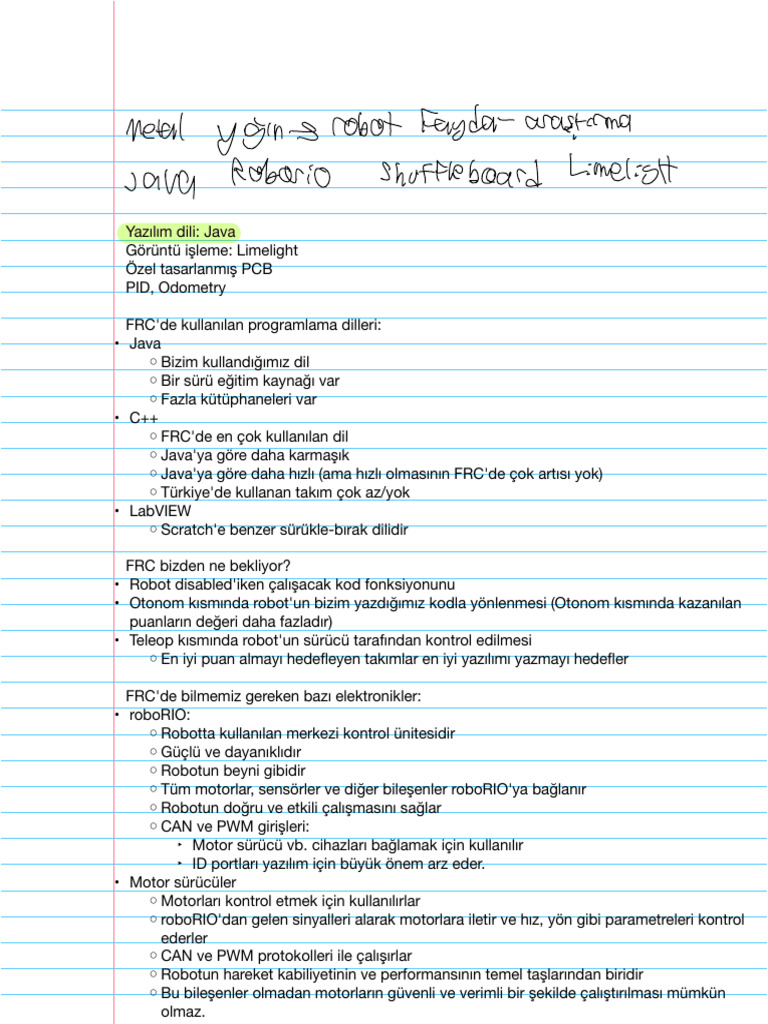 Metal yığın → robot Faydar araştırma
JAVA Roborio Shuffleboard Limelight
Yazılım dili: Java
Görüntü işleme: Limelight
Özel tasarlanmış PCB
PID, Odometry
FRC'de kullanılan programlama dilleri:
• Java
○ Bizim kullandığımız dil
○ Bir sürü eğitim kaynağı var
○ Fazla kütüphaneleri var
• C++
○ FRC'de en çok kullanılan dil
○ Java'ya göre daha karmaşık
○ Java'ya göre daha hızlı (ama hızlı olmasının FRC'de çok artısı yok)
○ Türkiye'de kullanan takım çok az/yok
• LabVIEW
○ Scratch'e benzer sürükle-bırak dilidir
FRC bizden ne bekliyor?
• Robot disabled'iken çalışacak kod fonksiyonunu
• Otonom kısmında robot'un bizim yazdığımız kodla yönlenmesi (Otonom kısmında kazanılan
puanların değeri daha fazladır)
• Teleop kısmında robot'un sürücü tarafından kontrol edilmesi
○ En iyi puan almayı hedefleyen takımlar en iyi yazılımı yazmayı hedefler
FRC'de bilmemiz gereken bazı elektronikler:
• roboRIO:
○ Robotta kullanılan merkezi kontrol ünitesidir
○ Güçlü ve dayanıklıdır
○ Robotun beyni gibidir
○ Tüm motorlar, sensörler ve diğer bileşenler roboRIO'ya bağlanır
○ Robotun doğru ve etkili çalışmasını sağlar
○ CAN ve PWM girişleri:
‣ Motor sürücü vb. cihazları bağlamak için kullanılır
‣ ID portları yazılım için büyük önem arz eder.
• Motor sürücüler
○ Motorları kontrol etmek için kullanılırlar
○ roboRIO'dan gelen sinyalleri alarak motorlara iletir ve hız, yön gibi parametreleri kontrol
ederler
○ CAN ve PWM protokolleri ile çalışırlar
○ Robotun hareket kabiliyetinin ve performansının temel taşlarından biridir
○ Bu bileşenler olmadan motorların güvenli ve verimli bir şekilde çalıştırılması mümkün
olmaz.